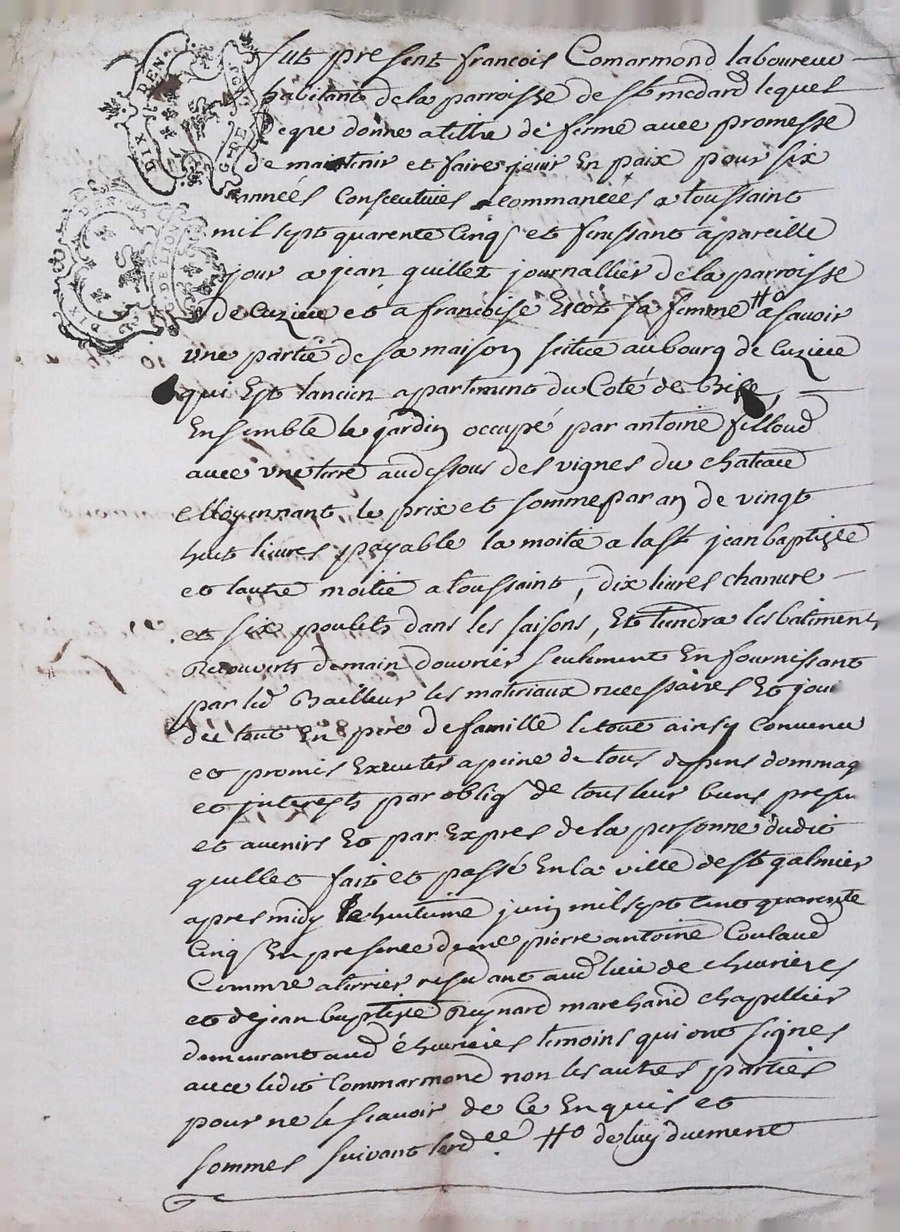 DIX DEN
G. DE LION
DIX DEN
G. DE LION
fut present francois Comarmond laboureur
habitant de la parroisse de St medard lequel
gre donne a tiltre de ferme avec promesse
de maintenir et faire jouir En paix pour six
années Consecutives commancées a toussaint
mil sept quarente Cinq et finissant a pareille
jour a jean quillet journallier de la parroisse
de Cuzieu et a francoise Escot sa femme #o a savoir
une partie de sa maison scituee au bourg de Cuzieu
qui Est lancien apartement du Coté de Bise
Ensemble le jardin occupé par antoine filloud
avec une terre audessous des vignes du chateau
Moyennant le prix et somme par an de vingt
huit livres payable la moitié a la St jean baptiste
et lautre moitié a toussaint, dix livres chanvre
et six poulets dans les saisons, Et tiendra les batiments
Recouverts de main douvrier seulement En fournissant
par led Bailleur les materiaux necessaires Et jouir
du tout En pere de famille le tout ainsy convenu
et promis Executer a peine de tous depens dommag
et interests par oblig de tous leur biens presen
et avenirs Et par Expres de la personne dudit
quillet fait et passé En la ville de St galmier
apres midy le huitieme juin mil sept cent quarente
Cinq En presence de me pierre antoine Coulaud
Commre a terrier residant aud lieu de chevrieres
et de jean baptiste Reynard marchand chapellier
demeurant aud chevrieres temoins qui ont signes
avec ledit Commarmond non les autres parties
pour ne le scavoir de Ce Enquis et
sommes suivant lordce. #o de luy duement